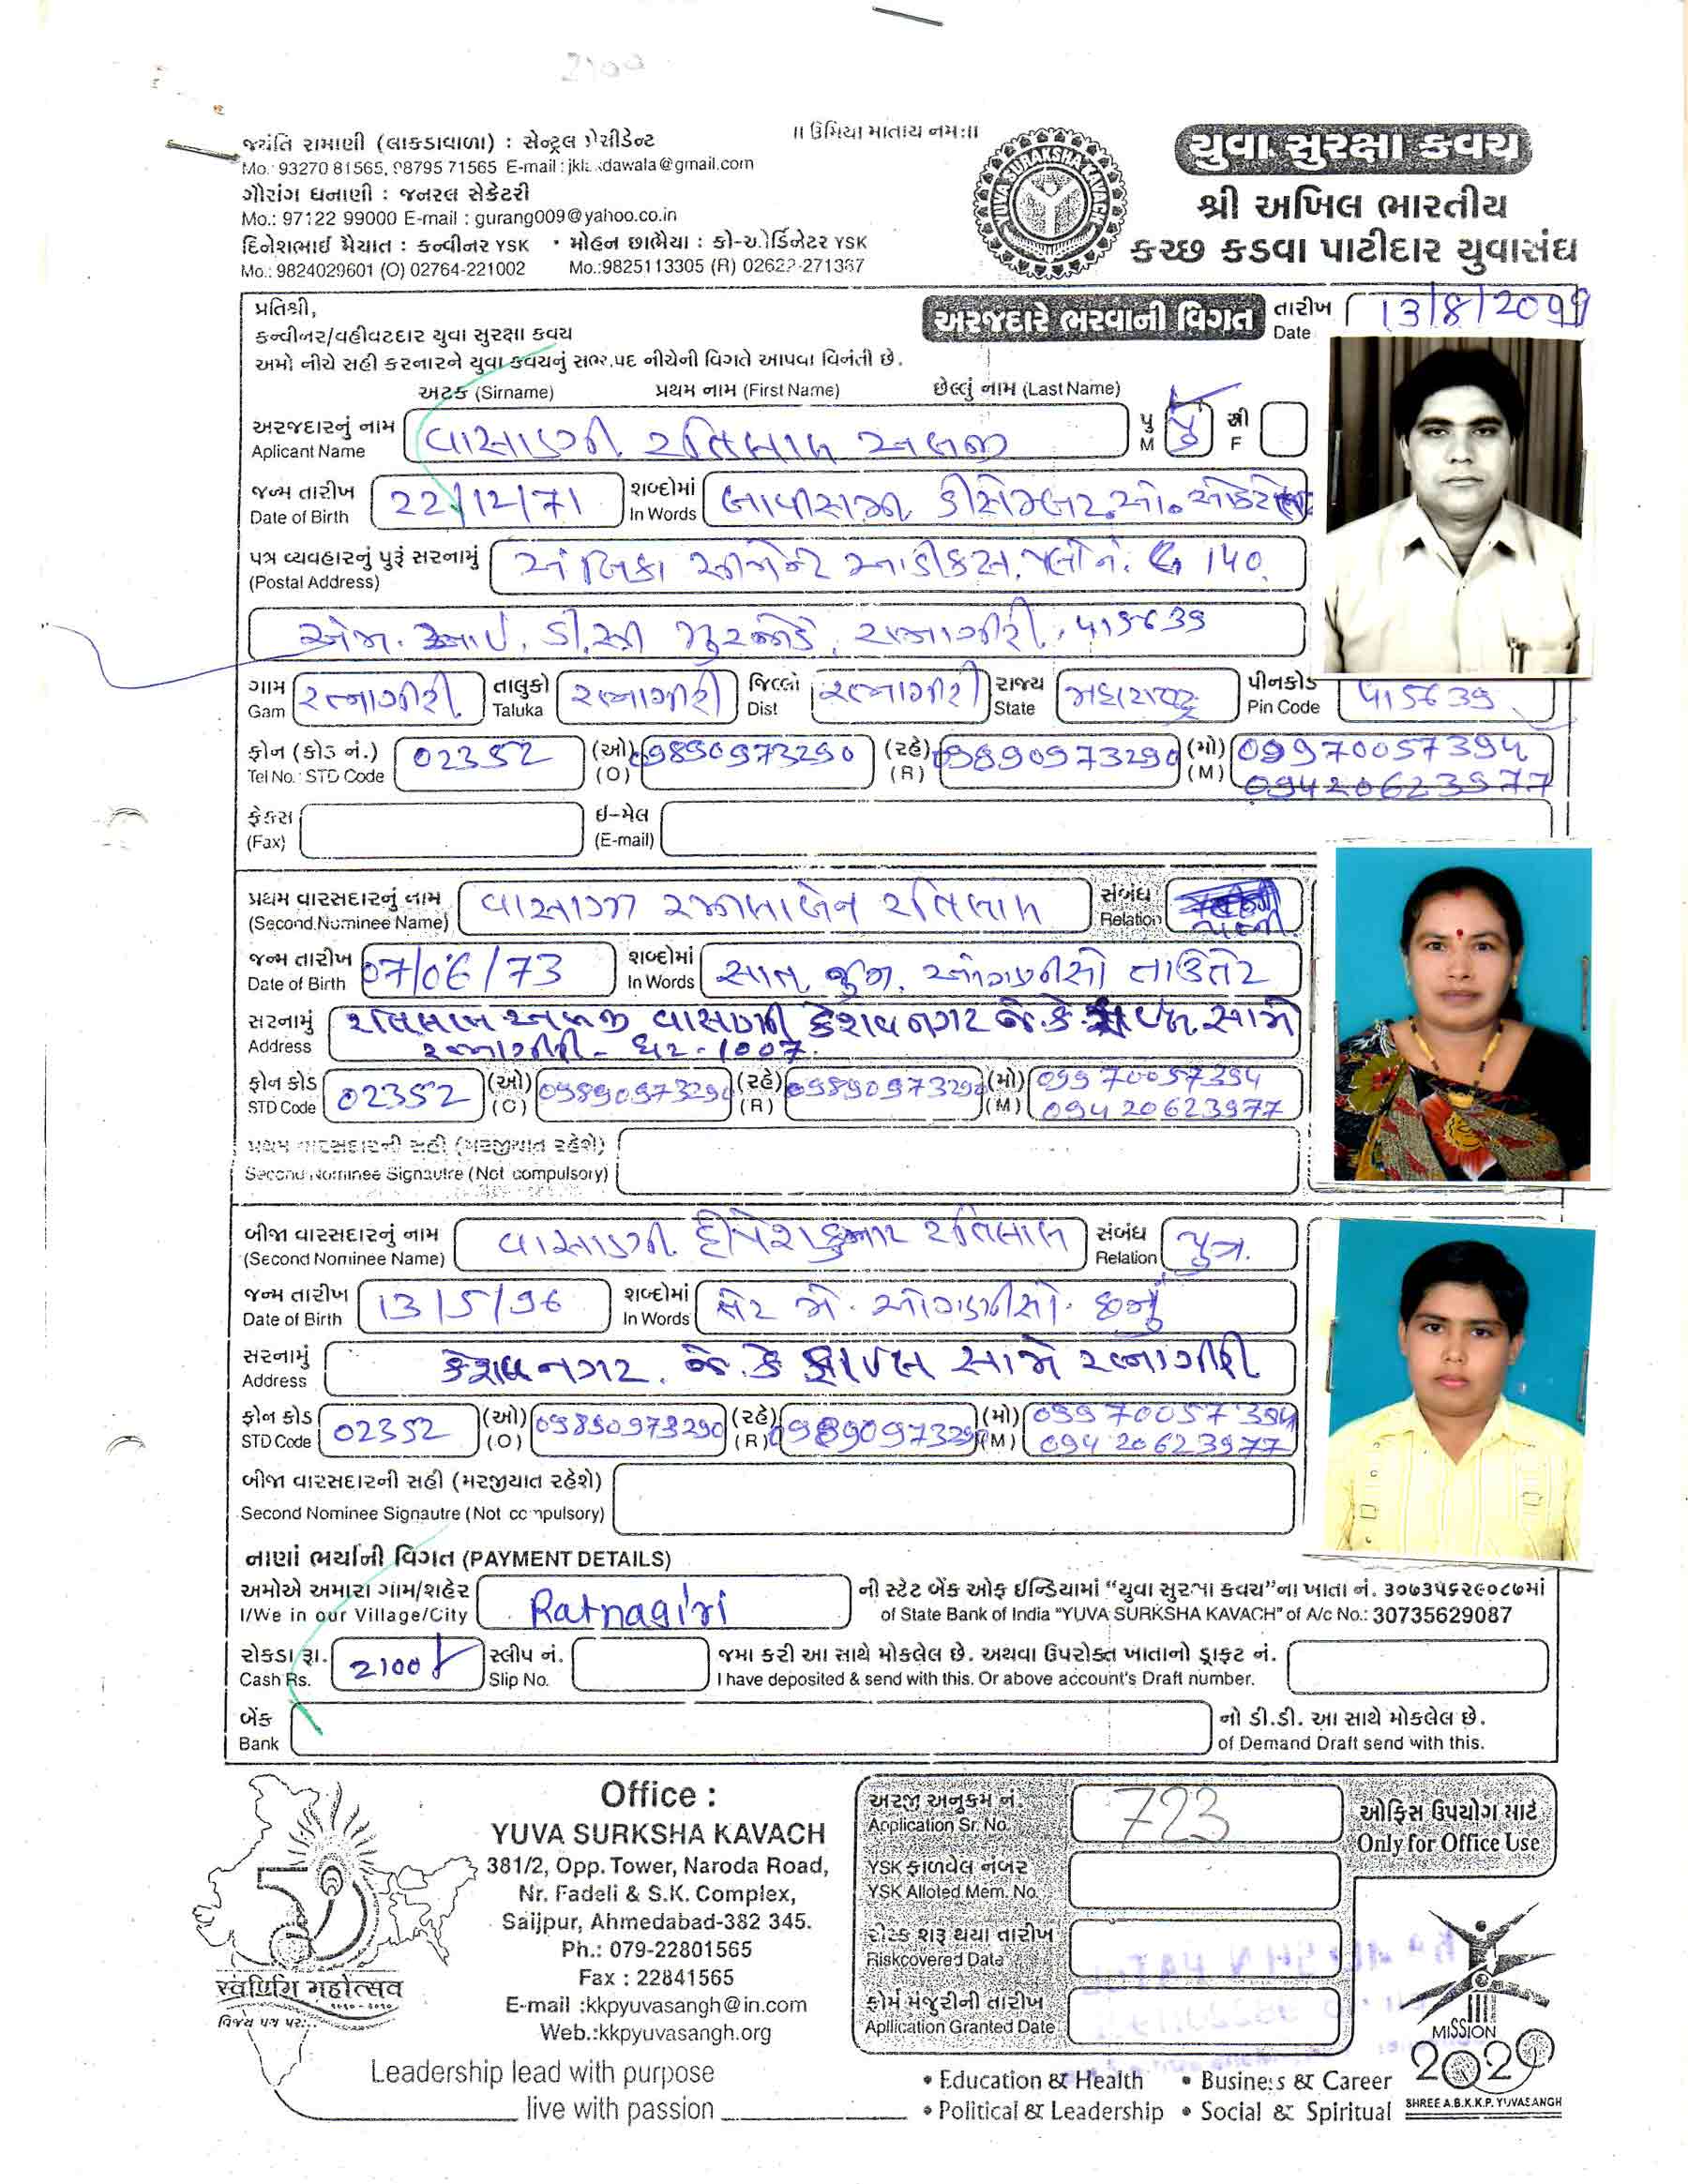 2100
જયંતિ રામાણી (લાકડાવાળા) : સેન્ટ્રલ પ્રેસીડેન્ટ
Mo.: 93270 81565, 98795 71565 E-mail :
ગૌરાંગ ધનાણી : જનરલ સેક્રેટરી
Mo.: 97122 99000 E-mail : gurang009@yahoo.co.in
દિનેશભાઈ મૈયાત : કન્વીનર YSK • મોહન છાભૈયા : કો-ઓર્ડિનેટર YSK
Mo.: 9824029601 (O) 02764-221002 Mo.:9825113305 (R)
॥ ઉમિયા માતાય નમ:॥
YUVA SURAKSHA KAVACH
યુવા સુરક્ષા કવચ
શ્રી અખિલ ભારતીય
કચ્છ કડવા પાટીદાર યુવાસંઘ
પ્રતિશ્રી,
અરજદારે ભરવાની વિગત તારીખ Date 13/8/20
કન્વીનર/વહીવટદાર યુવા સુરક્ષા કવચ
અમો નીચે સહી કરનારને યુવા કવચનું સભ્યપદ નીચેની વિગતે આપવા વિનંતી છે.
અટક (Sirname) પ્રથમ નામ (First Name) છેલ્લું નામ (Last Name)
અરજદારનું નામ Aplicant Name વાસાણી રતિલાલ પુ M પુ સ્ત્રી F
જન્મ તારીખ Date of Birth 22/12/71 શબ્દોમાં In Words બાવીસમી ડીસેમ્બર
પત્ર વ્યવહારનું પુરૂં સરનામું (Postal Address) અંબિકા G 140
એમ. આઈ. ડી.સી રત્નાગીરી
ગામ Gam રત્નાગીરી તાલુકો Taluka રત્નાગીરી જિલ્લો Dist રત્નાગીરી રાજ્ય State મહારાષ્ટ્ર પીનકોડ Pin Code 415639
ફોન (કોડ નં.) Tel No.: STD Code 02352 (ઓ) (O) 09890973290 (રહે) (R) 09890973290 (મો) (M) 09970057394
09420623977
ફેકસ (Fax) ઈ-મેલ (E-mail)
પ્રથમ વારસદારનું નામ (Second Numinee Name) વાસાણી રતિલાલ સંબંધ Relation પત્ની
જન્મ તારીખ Date of Birth 07/06/73 શબ્દોમાં In Words સાત જુન ઓગણીસો
સરનામું Address રતિલાલ વાસાણી કેશવનગર જે.કે સામે
રત્નાગીરી - ઘર - 1007
ફોન કોડ STD Code 02352 (ઓ) (O) 09890973290 (રહે) (R) 09890973290 (મો) (M) 09970057394
09420623977
પ્રથમ વારસદારની સહી (મરજીયાત રહેશે)
Second Nominee Signautre (Not compulsory)
બીજા વારસદારનું નામ (Second Nominee Name) વાસાણી દીપેશકુમાર રતિલાલ સંબંધ Relation પુત્ર.
જન્મ તારીખ Date of Birth 13/5/96 શબ્દોમાં In Words તેર મે ઓગણીસો છન્નું
સરનામું Address કેશવનગર. જે.કે સામે રત્નાગીરી
ફોન કોડ STD Code 02352 (ઓ) (O) 09890973290 (રહે) (R) 09890973290 (મો) (M) 09970057394
09420623977
બીજા વારસદારની સહી (મરજીયાત રહેશે)
Second Nominee Signautre (Not compulsory)
નાણાં ભર્યાની વિગત (PAYMENT DETAILS)
અમોએ અમારા ગામ/શહેર Ratnagiri ની સ્ટેટ બેંક ઓફ ઈન્ડિયામાં "યુવા સુરક્ષા કવચ"ના ખાતા નં. ૩૦૭૩૫૬૨૯૦૮૭માં
I/We in our Village/City of State Bank of India "YUVA SURKSHA KAVACH" of A/c No.: 30735629087
રોકડા રૂા. 2100/ સ્લીપ નં. જમા કરી આ સાથે મોકલેલ છે. અથવા ઉપરોક્ત ખાતાનો ડ્રાફ્ટ નં.
Cash Rs. Slip No. I have deposited & send with this. Or above account's Draft number.
બેંક નો ડી.ડી. આ સાથે મોકલેલ છે.
Bank of Demand Draft send with this.
Office :
YUVA SURKSHA KAVACH
381/2, Opp. Tower, Naroda Road,
Nr. Fadeli & S.K. Complex,
Saijpur, Ahmedabad-382 345.
Ph.: 079-22801565
Fax : 22841565
E-mail :kkpyuvasangh@in.com
Web.:kkpyuvasangh.org
અરજી અનુક્રમ નં. Application Sr. No. 723
ઓફિસ ઉપયોગ માટે
Only for Office Use
YSK ફાળવેલ નંબર
YSK Alloted Mem. No.
રીસ્ક શરૂ થયા તારીખ
Riskcovered Date
ફોર્મ મંજુરીની તારીખ
Apllication Granted Date
50
સ્વર્ણિમ મહોત્સવ
વિજય પથ પર...
Leadership lead with purpose
live with passion
• Education & Health • Business & Career
• Political & Leadership • Social & Spiritual
MISSION
2020
SHREE A.B.K.K.P. YUVASANGH